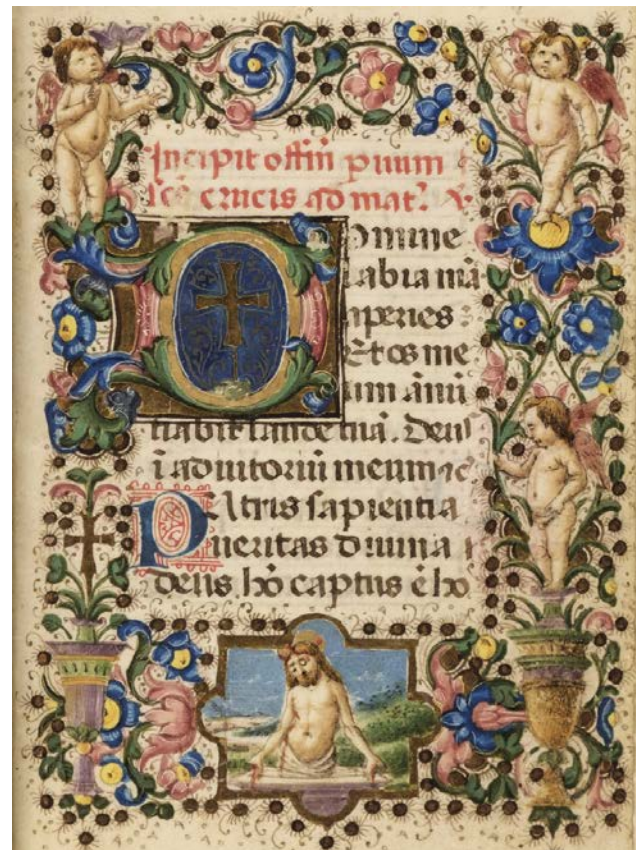 Incipit offitiũ paruum
scẽ crucis ad mat? ꝟ.
Domine
labia mã
aperies :
Et os me
um ãnũ
tiabit laudẽ tuã. Deus
ĩ adiutoriũ meum ac
Patris sapientia
ueritas diuina
deus hõ captus ẽ ho